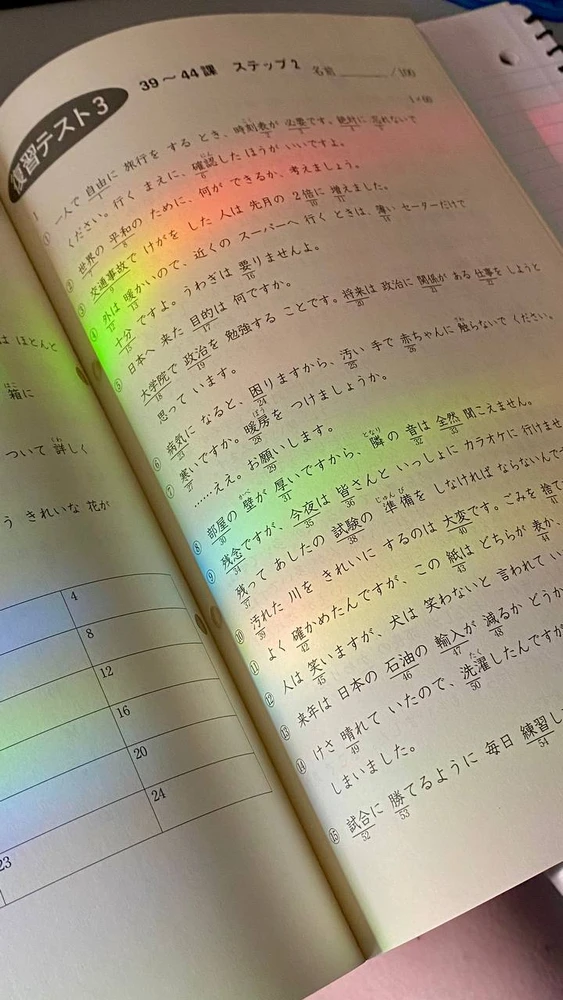 は ほとんど
箱に
はこ
ついて 詳しく
くわ
う きれいな 花が
4
8
12
16
20
23
24
復習テスト3
39～44課 ステップ2 名前 /100
1×60
1
① 一人で 自由に 旅行を する とき、時刻表が 必要です。絶対に 忘れないで
ください。行く まえに、確認した ほうが いいですよ。
② 世界の 平和の ために、何が できるか、考えましょう。
③ 交通事故で けがを した 人は 先月の 2倍に 増えました。
④ 外は 暖かいので、近くの スーパーへ 行く ときは、薄い セーターだけで
十分ですよ。うわぎは 要りませんよ。
⑤ 日本へ 来た 目的は 何ですか。
大学院で 政治を 勉強する ことです。将来は 政治に 関係が ある 仕事を しようと
思って います。
⑥ 病気に なると、困りますから、汚い 手で 赤ちゃんに 触らないで ください。
⑦ 寒いですか。暖房を つけましょうか。
……ええ。お願いします。
⑧ 部屋の 壁が 厚いですから、隣の 音は 全然 聞こえません。
⑨ 残念ですが、今夜は 皆さんと いっしょに カラオケに 行けませ
残って あしたの 試験の 準備を しなければ ならないんで
⑩ 汚れた 川を きれいに するのは 大変です。ごみを 捨て
⑪ よく 確かめたんですが、この 紙は どちらが 表か、
⑫ 人は 笑いますが、犬は 笑わないと 言われて い
⑬ 来年は 日本の 石油の 輸入が 減るか どうか
⑭ けさ 晴れて いたので、洗濯したんですが
しまいました。
⑮ 試合に 勝てるように 毎日 練習し